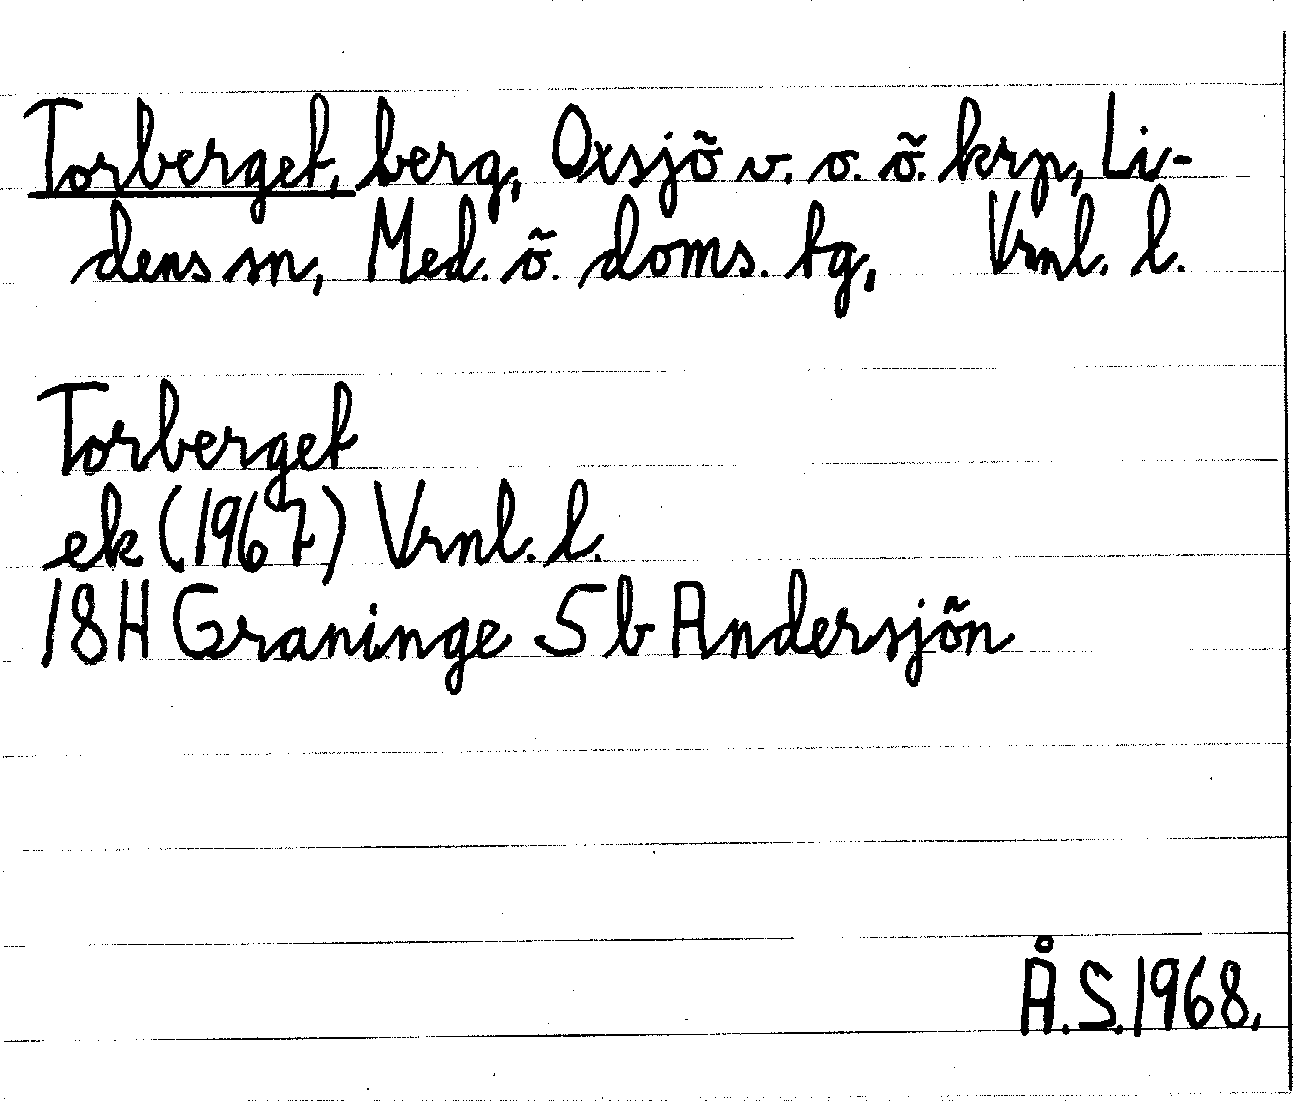 Torberget, berg, Oxsjö v. o. ö. krp, Li-
dens sn, Med. ö. doms. tg, Vrnl. l.
Torberget
ek (1967) Vrnl. l.
18H Graninge 5 b Andersjön
Å.S. 1968.